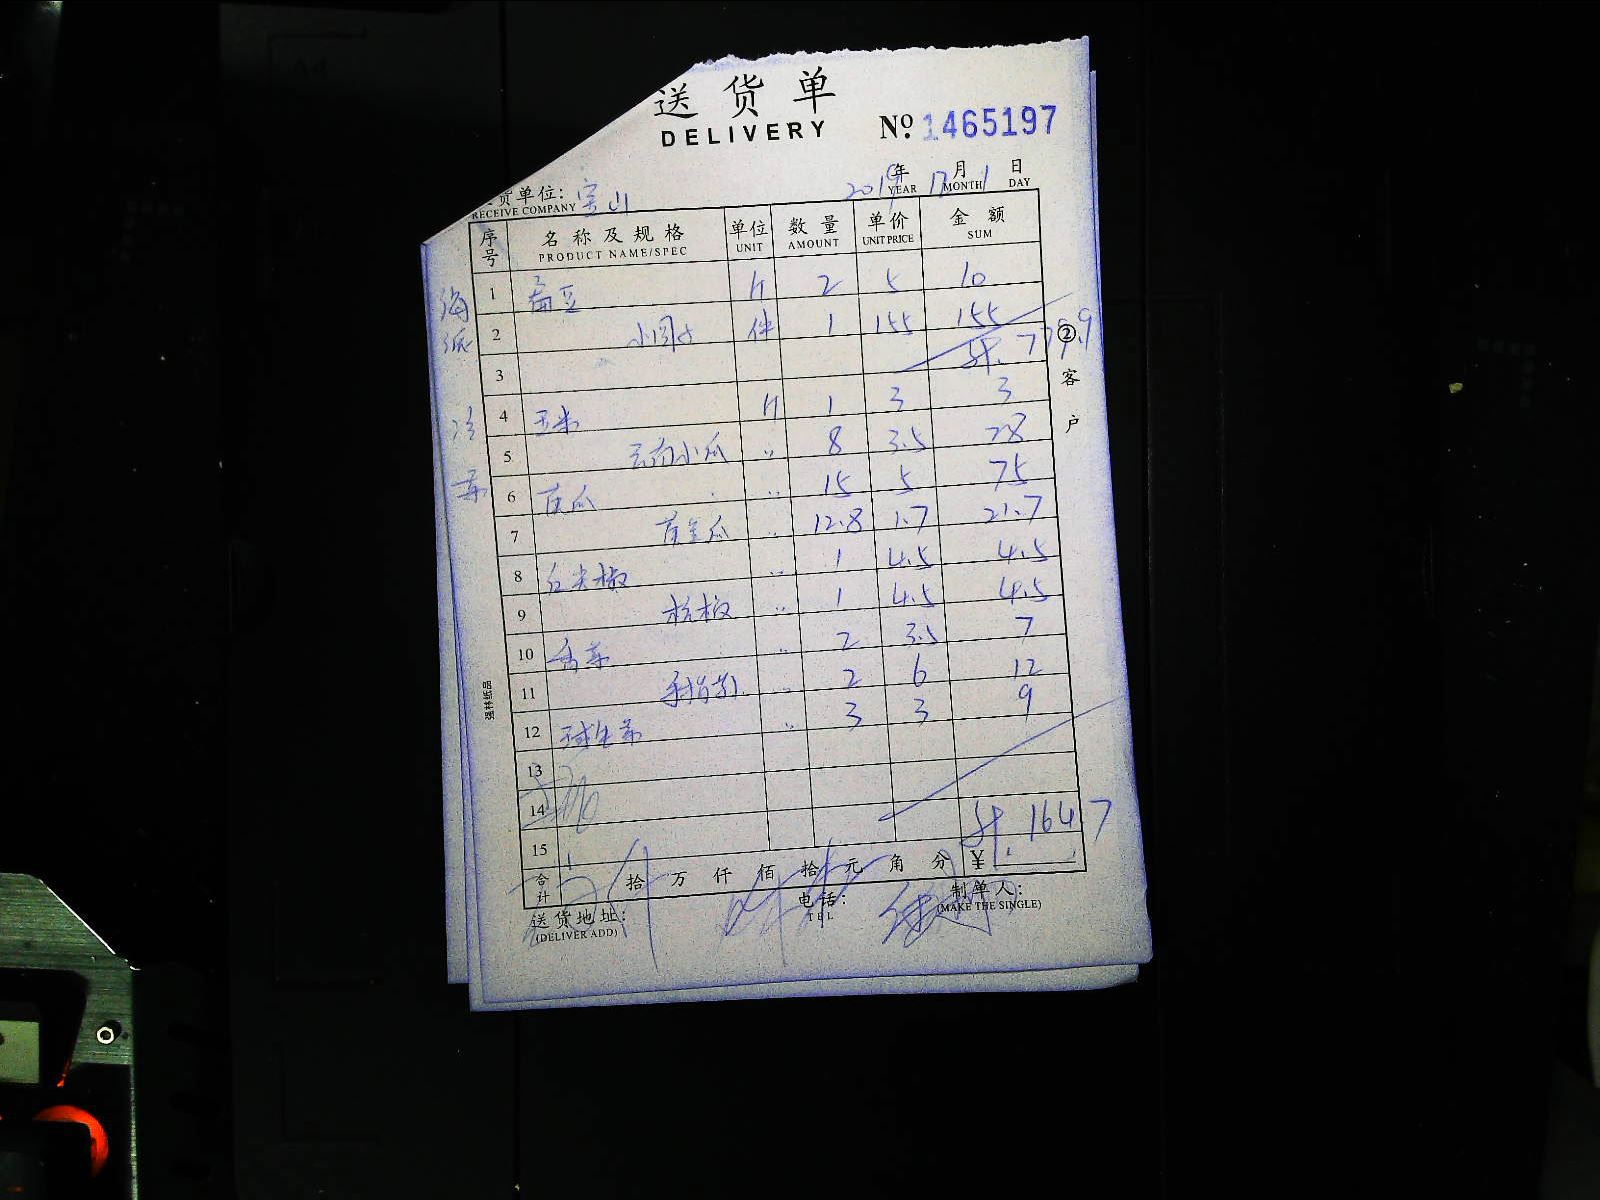 送货单
DELIVERY
No. 1465197
货单位: 宝山
RECEIVE COMPANY
2019年 12月 1日
YEAR MONTH DAY
序号 名称及规格 单位 数量 单价 金额
PRODUCT NAME/SPEC UNIT AMOUNT UNIT PRICE SUM
1 扁豆 斤 2 5 10
2 小圆子 件 1 155 155
3 计. 779.9
4 玉米 斤 1 3 3
5 云南小瓜 〃 8 3.5 28
6 黄瓜 〃 15 5 75
7 黄金瓜 〃 12.8 1.7 21.7
8 红尖椒 〃 1 4.5 4.5
9 杭椒 〃 1 4.5 4.5
10 香菜 〃 2 3.5 7
11 〃 2 6 12
12 球生菜 〃 3 3 9
13
14
15
计. 164.7
合计 拾 万 仟 佰 拾 元 角 分 ¥
送货地址:
(DELIVER ADD)
电话:
TEL
制单人:
(MAKE THE SINGLE)
②客户
强林纸品